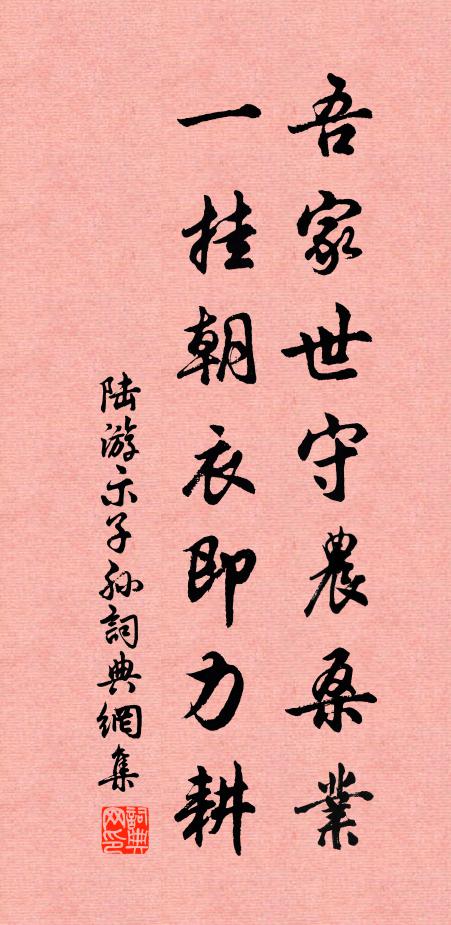 吾家世守農桑業
一挂朝衣即力耕
陆游示子孙詞典網集
詞典网印